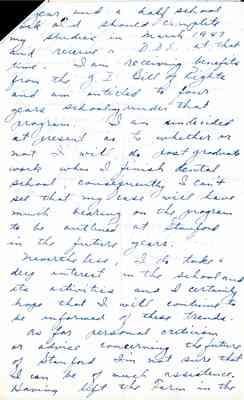 year and a half school
work and should complete
my studies in March 1947
and receive a D.D.S. at that
time. I am receiving benefits
from the G.I. Bill of Rights
and am intitled to four
years schooling under that
program. I am undecided
at present as to whether or
not I will do post graduate
work when I finish dental
school, consequently I can't
see that my case will have
much bearing on the program
to be outlined at Stanford
in the future years.
Nevertheless, I do take a
deep interest in the school and
its activities and I certainly
hope that I will continue to
be informed of these trends.
As for personal criticism
or advice concerning the future
of Stanford I'm not sure that
I can be of much assistance.
Having left the Farm in the